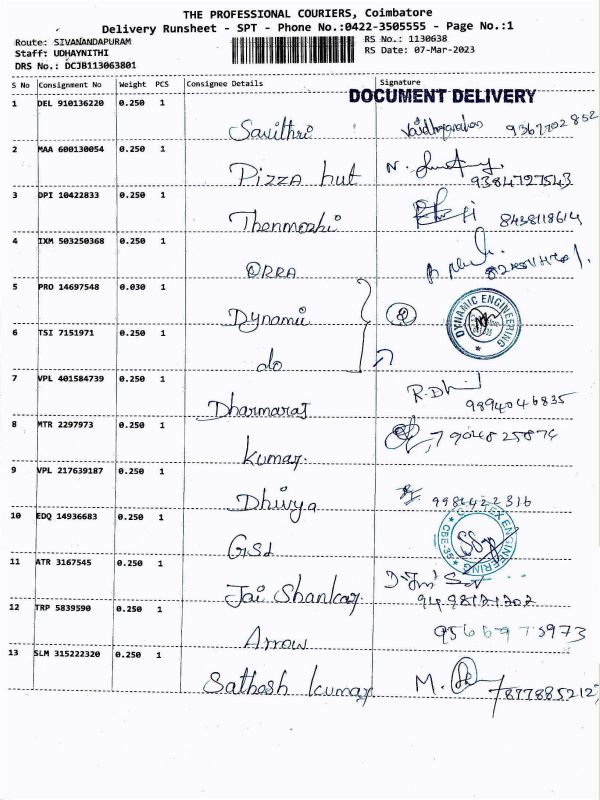 THE PROFESSIONAL COURIERS, Coimbatore
Delivery Runsheet - SPT - Phone No.:0422-3505555 - Page No.:1
Route: SIVANANDAPURAM
RS No.: 1130638
Staff: UDHAYNITHI
RS Date: 07-Mar-2023
DRS No.: DCJB113063801
S No Consignment No Weight PCS Consignee Details Signature
DOCUMENT DELIVERY
1 DEL 910136220 0.250 1
Savithri
2 MAA 600130054 0.250 1
Pizza hut N. 9384727543
3 DPI 10422833 0.250 1
Thenmozhi 8438118614
4 IXM 503250368 0.250 1
ORRA
5 PRO 14697548 0.030 1
Dynamic
DYNAMIC ENGINEERING
6 TSI 7151971 0.250 1
do
7 VPL 401584739 0.250 1
Dharmaraj 9894046835
8 MTR 2297973 0.250 1
Kumar 7904825874
9 VPL 217639187 0.250 1
Dhivya
10 EDQ 14936683 0.250 1
ENGINEERING
CBE-35
11 ATR 3167545 0.250 1
Jai Shankar
12 TRP 5839590 0.250 1
Arrow
13 SLM 315222320 0.250 1
Sathesh kumar M.